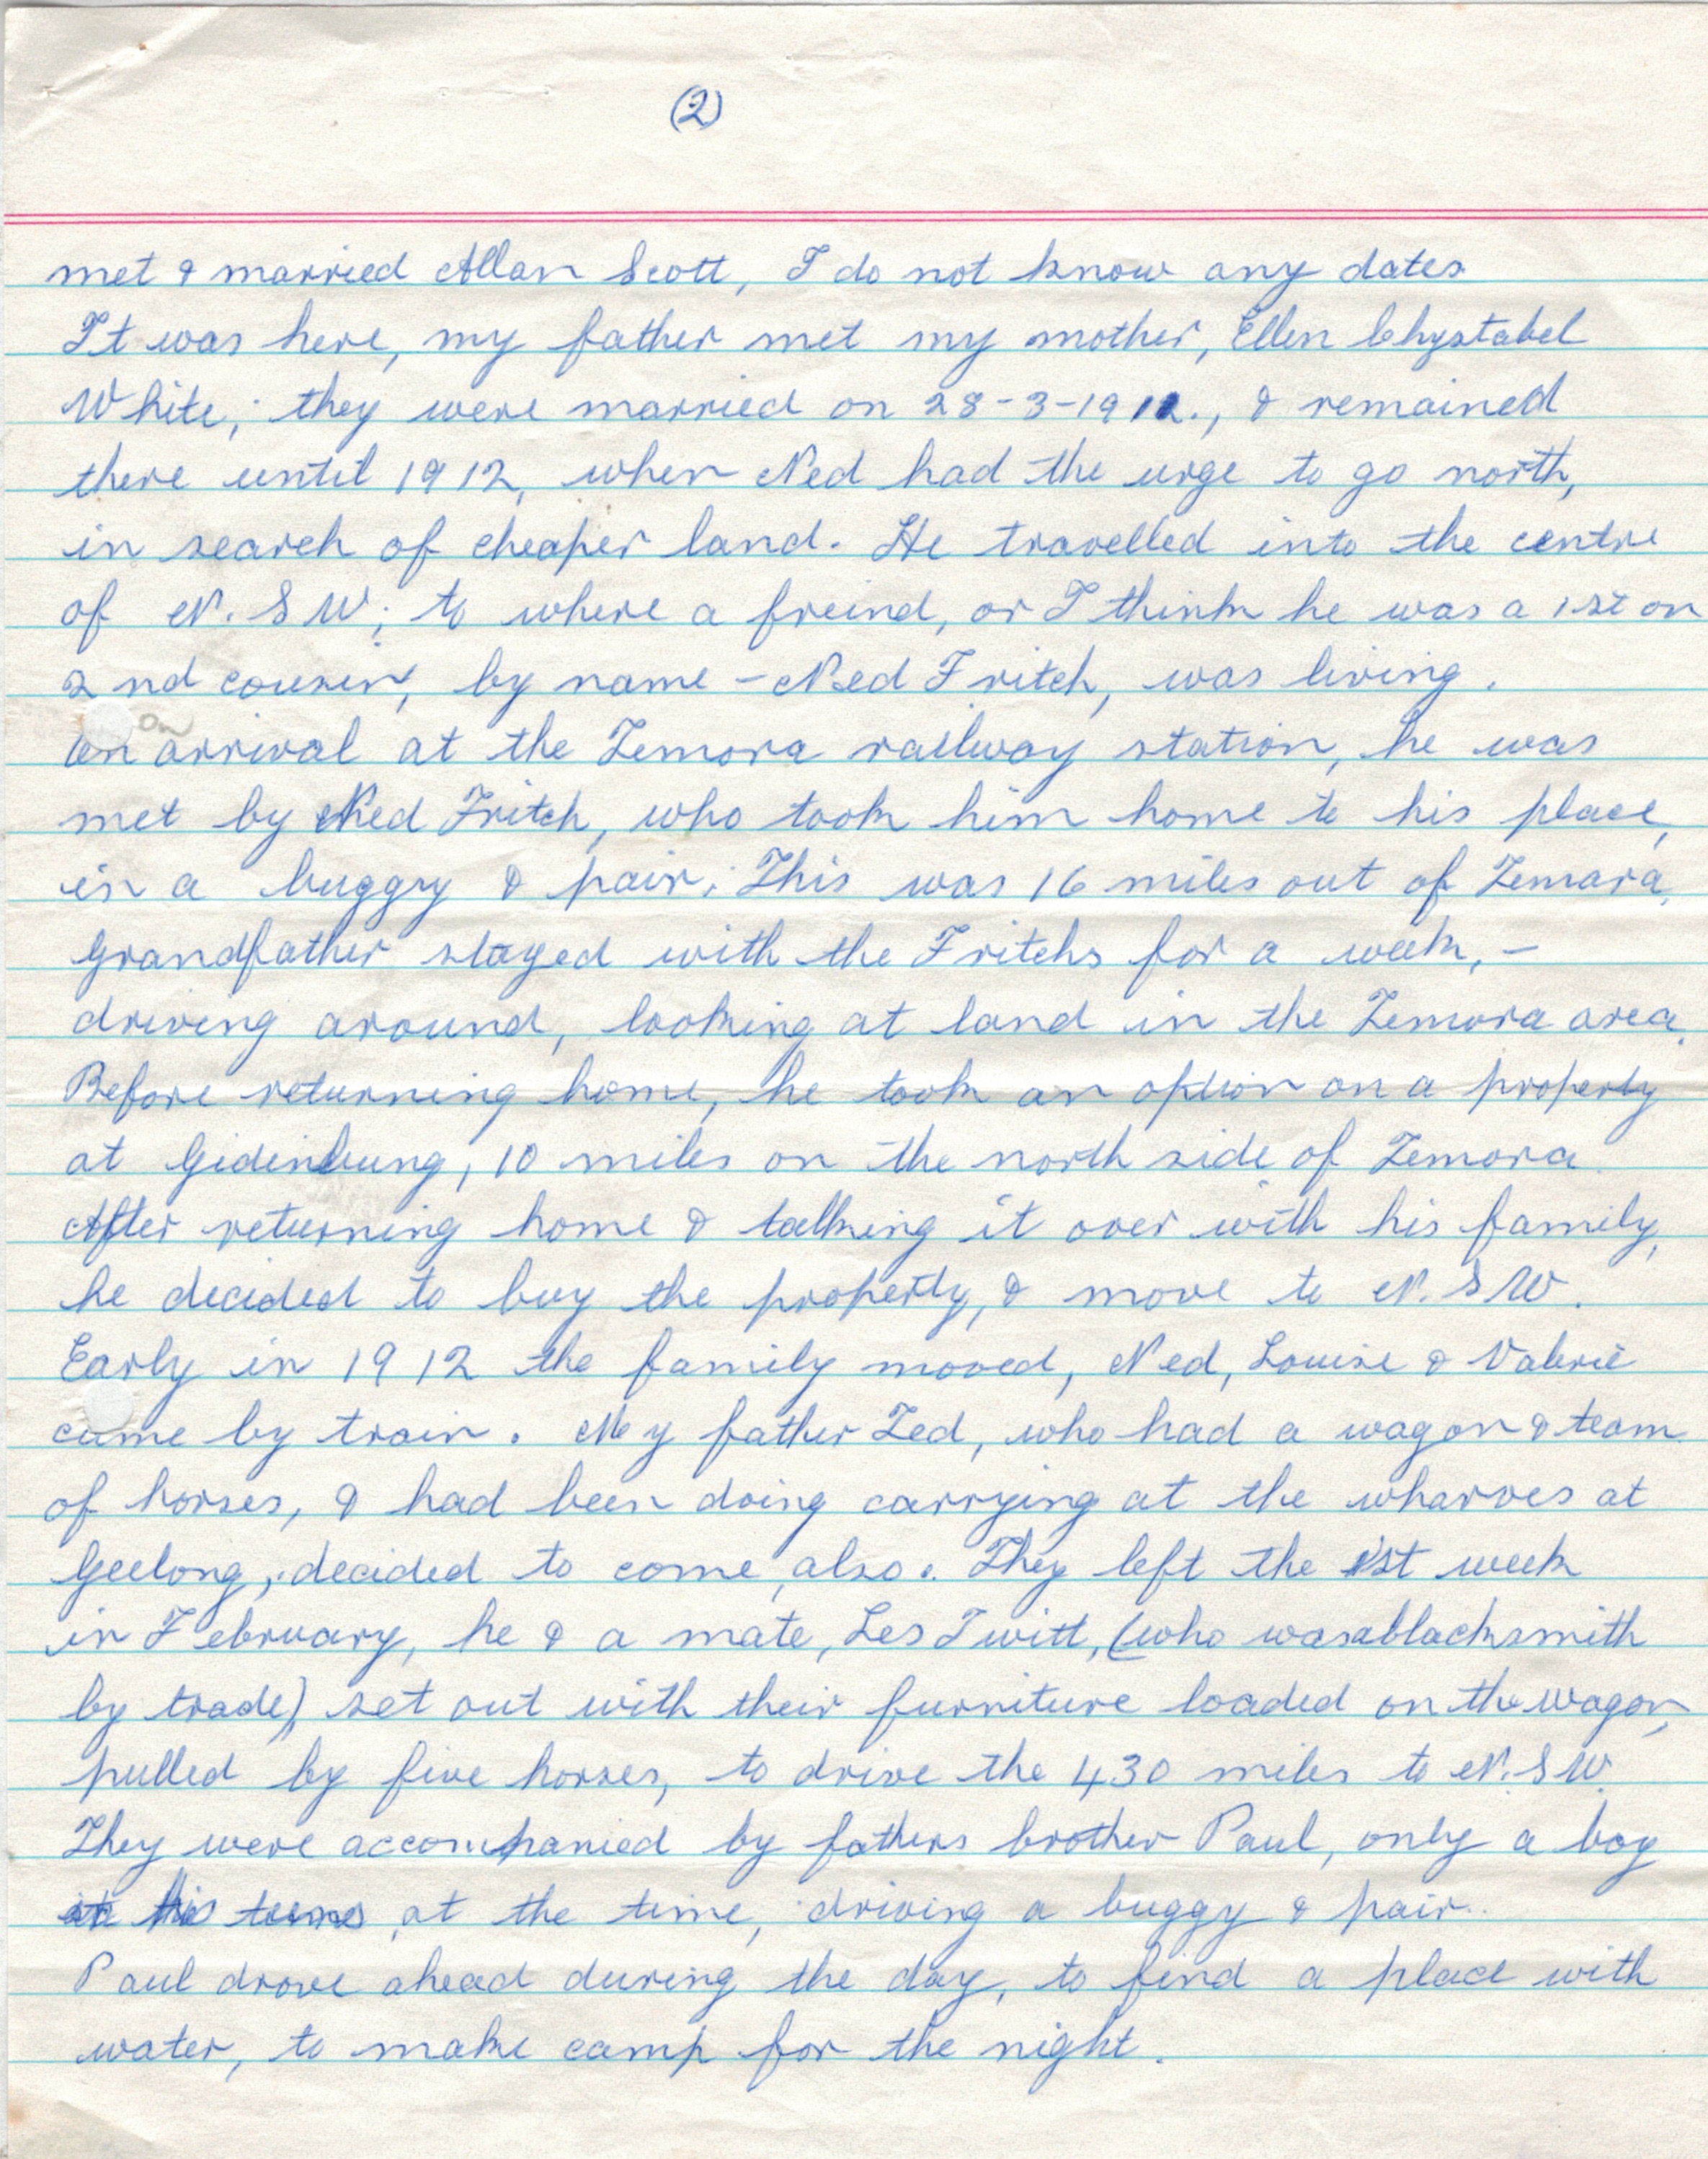 (2)
met & married Allan Scott, I do not know any dates
It was here, my father met my mother, Ellen Chystabel
White; they were married on 28-3-1912., & remained
there until 1912, when Ned had the urge to go north,
in search of cheaper land. He travelled into the centre
of N.SW; to where a freind, or I think he was a 1st or
2nd cousin, by name - Ned Fritch, was living.
on
On arrival at the Temora railway station, he was
met by Ned Fritch, who took him home to his place,
in a buggy & pair; This was 16 miles out of Temora,
Grandfather stayed with the Fritchs for a week, -
driving around, looking at land in the Temora area.
Before returning home, he took an option on a property
at Gidinbung, 10 miles on the north side of Temora.
After returning home & talking it over with his family,
he decided to buy the property, & move to N.SW.
Early in 1912 the family moved, Ned, Louise & Valerie
came by train. My father Ted, who had a wagon & team
of horses, & had been doing carrying at the wharves at
Geelong, decided to come, also. They left the 1st week
in February, he & a mate, Les Twitt, (who was a blacksmith
by trade), set out with their furniture loaded on the wagon,
pulled by five horses, to drive the 430 miles to N.SW.
They were accompanied by fathers brother Paul, only a boy
in his teens, at the time, driving a buggy & pair.
Paul drove ahead during the day, to find a place with
water, to make camp for the night.